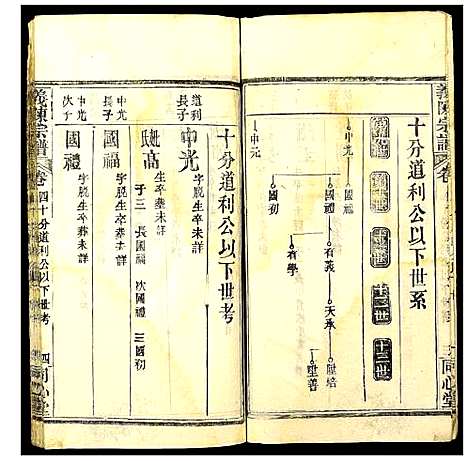 十分道利公以下世系
十三世
中光
中元
國初
有義
有學
天承
聖培
聖善
義陳宗譜
卷
同心堂
十分道利公以下世考
道利
長子
中光
字脫生卒葬未詳
妣高
生卒葬未詳
子三 長國福 次國禮 三國初
中光
長子
國福
字脫生卒葬未詳
中光
次子
國禮
字脫生卒葬未詳
義陳宗譜
卷四
十分道利公以下世考
四
同心堂